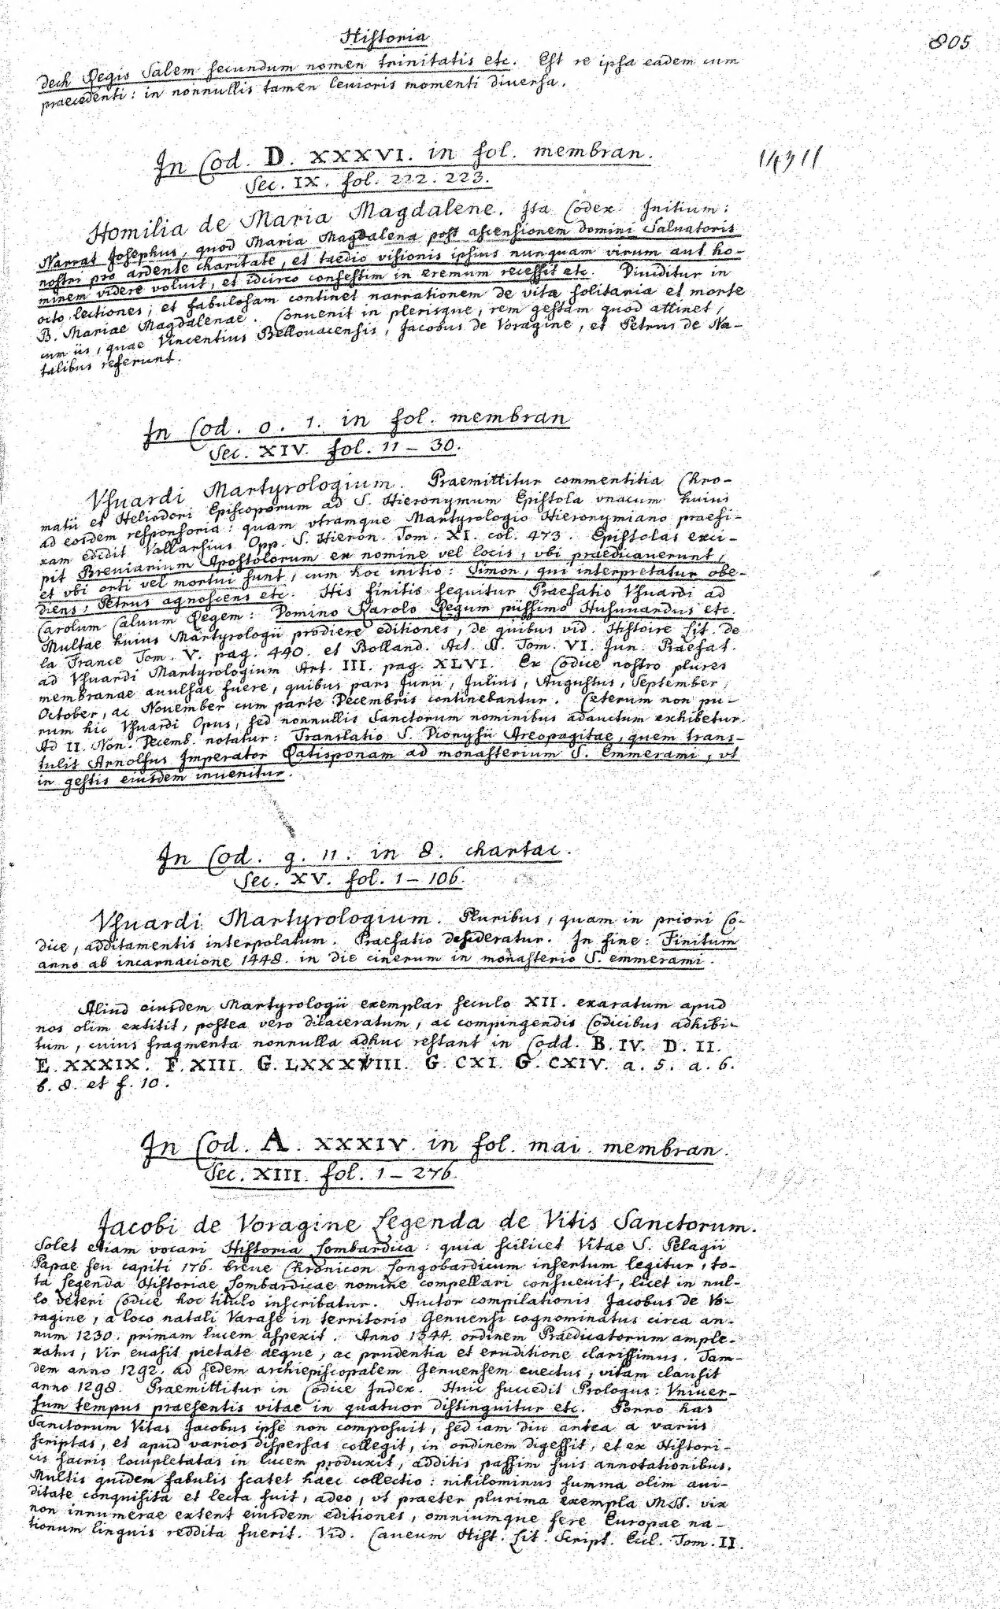 Historia
805
dech Regis Salem secundum nomen trinitatis etc. Est re ipsa eadem cum
praecedenti: in nonnullis tamen levioris momenti diversa.
In Cod. D. XXXVI. in fol. membran.
14311
Sec. IX. fol. 222. 223.
Homilia de Maria Magdalene. Ita Codex. Initium:
Narrat Josephus, quod Maria Magdalena post ascensionem domini Salvatoris
nostri pro ardente charitate, et taedio visionis ipsius nunquam virum aut ho-
minem videre voluit, et idcirco confestim in eremum recessit etc. Dividitur in
octo lectiones, et fabulosam continet narrationem de vita solitaria et morte
B. Mariae Magdalenae. Convenit in plerisque, rem gestam quod attinet,
cum iis, quae Vincentius Bellovacensis, Jacobus de Voragine, et Petrus de Na-
talibus referunt.
In Cod. o. 1. in fol. membran
Sec. XIV. fol. 11 – 30.
Vsuardi Martyrologium. Praemittitur commentitia Chro-
matii et Heliodori Episcoporum ad S. Hieronymum Epistola vnacum huius
ad eosdem responsoria: quam vtramque Martyrologio Hieronymiano praefi-
xam edidit Vallarsius Opp. S. Hieron. Tom. XI. col. 473. Epistolas exci-
pit Breviarium Apostolorum ex nomine vel locis, vbi praedicaverunt,
et vbi orti vel mortui sunt, cum hoc initio: Simon, qui interpretatur obe-
diens, Petrus agnoscens etc. His finitis sequitur Praefatio Vsuardi ad
Carolum Calvum Regem: Domino Karolo Regum piissimo Husuuardus etc.
Multae huius Martyrologii prodiere editiones, de quibus vid. Histoire Lit. de
la France Tom. V. pag. 440. et Bolland. Act. SS. Tom. VI. Jun. Praefat.
ad Vsuardi Martyrologium Art. III. pag. XLVI. Ex Codice nostro plures
membranae avulsae fuere, quibus pars Junii, Julius, Augustus, September,
October, ac November cum parte Decembris continebantur. Ceterum non pu-
rum hic Vsuardi Opus, sed nonnullis Sanctorum nominibus adauctum exhibetur.
Ad II. Non. Decemb. notatur: Translatio S. Dionysii Areopagitae, quem trans-
tulit Arnolfus Imperator Ratisponam ad monasterium S. Emmerami, vt
in gestis eiusdem invenitur.
In Cod. g. 11. in 8. chartac.
Sec. XV. fol. 1 – 106.
Vsuardi Martyrologium. Pluribus, quam in priori Co-
dice, additamentis interpolatum. Praefatio desideratur. In fine: Finitum
anno ab incarnacione 1448. in die cinerum in monasterio S. emmerami.
Aliud eiusdem Martyrologii exemplar seculo XII. exaratum apud
nos olim extitit, postea vero dilaceratum, ac compingendis Codicibus adhibi-
tum, cuius fragmenta nonnulla adhuc restant in Codd. B. IV. D. II.
E. XXXIX. F. XIII. G. LXXXVIII. G. CXI. G. CXIV. a. 5. a. 6.
b. 8. et f. 10.
In Cod. A. XXXIV. in fol. mai. membran.
Sec. XIII. fol. 1 – 276.
Jacobi de Voragine Legenda de Vitis Sanctorum.
Solet etiam vocari Historia Lombardica: quia scilicet Vitae S. Pelagii
Papae seu capiti 176. breve Chronicon Longobardicum insertum legitur, to-
ta Legenda Historiae Lombardicae nomine compellari consuevit, licet in nul-
lo veteri Codice hoc titulo inscribatur. Auctor compilationis Jacobus de Vo-
ragine, a loco natali Varase in territorio Genuensi cognominatus circa an-
num 1230. primam lucem aspexit. Anno 1344. ordinem Praedicatorum ample-
xatus, Vir evasit pietate aeque, ac prudentia et eruditione clarissimus. Tan-
dem anno 1292. ad sedem archiepiscopalem Genuensem evectus, vitam clausit
anno 1298. Praemittitur in Codice Index. Huic succedit Prologus: Vniver-
sum tempus praesentis vitae in quatuor distinguitur etc. Porro has
Sanctorum Vitas Jacobus ipse non composuit, sed iam diu antea a variis
scriptas, et apud varios dispersas collegit, in ordinem digessit, et ex Histori-
cis sacris locupletatas in lucem produxit, additis passim suis annotationibus.
Multis quidem fabulis scatet haec collectio: nihilominus summa olim avi-
ditate conquisita et lecta fuit, adeo, vt praeter plurima exempla MSS. vix
non innumerae extent eiusdem editiones, omniumque fere Europae na-
tionum linguis reddita fuerit. Vid. Caveum Hist. Lit. Script. Eccl. Tom. II.